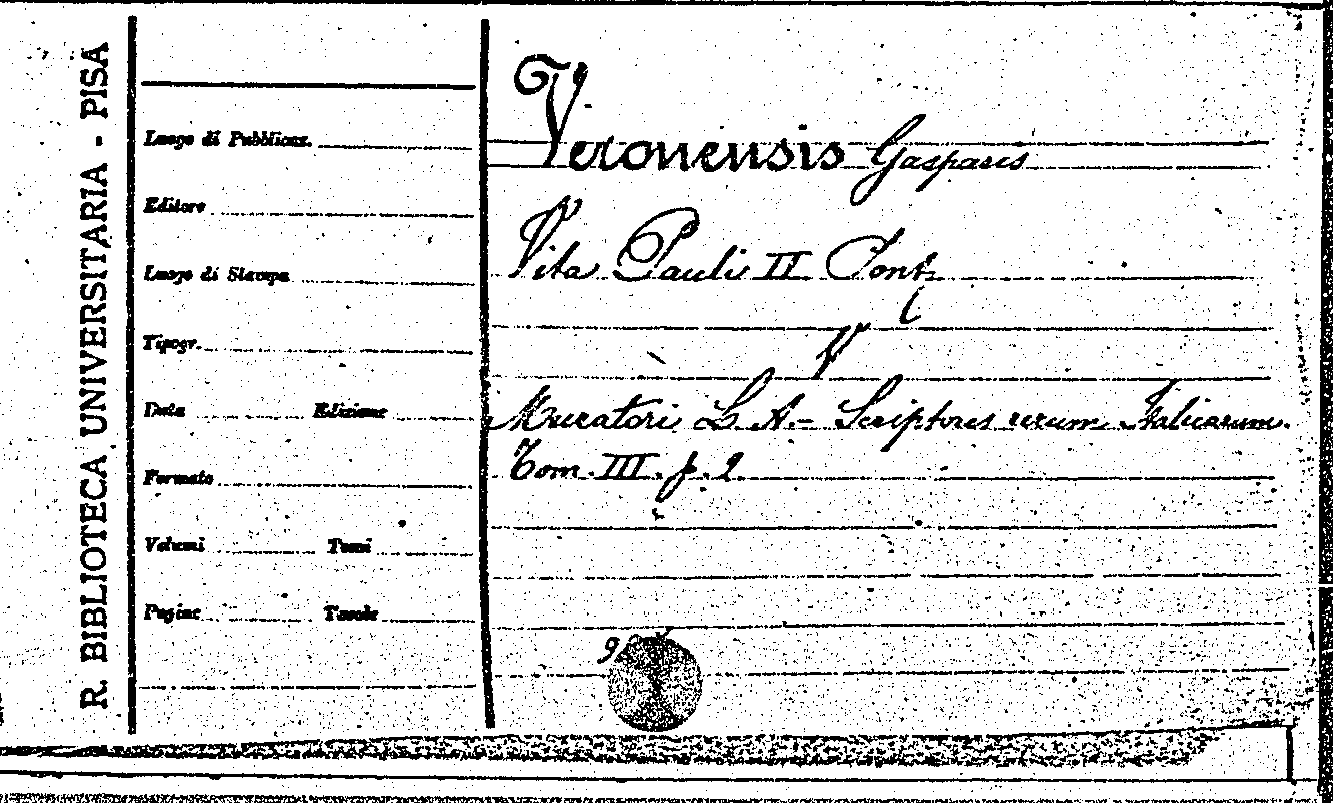 R. BIBLIOTECA UNIVERSITARIA - PISA
Luogo di Pubblicaz.
Editore
Luogo di Stampa
Tipogr.
Data Edizione
Formato
Volumi Tomi
Pagine Tavole
Veronensis Gasparis
Vita Pauli II Pont.
V
Muratori L. A.- Scriptores rerum Italicarum.
Tom. III. p. 2.